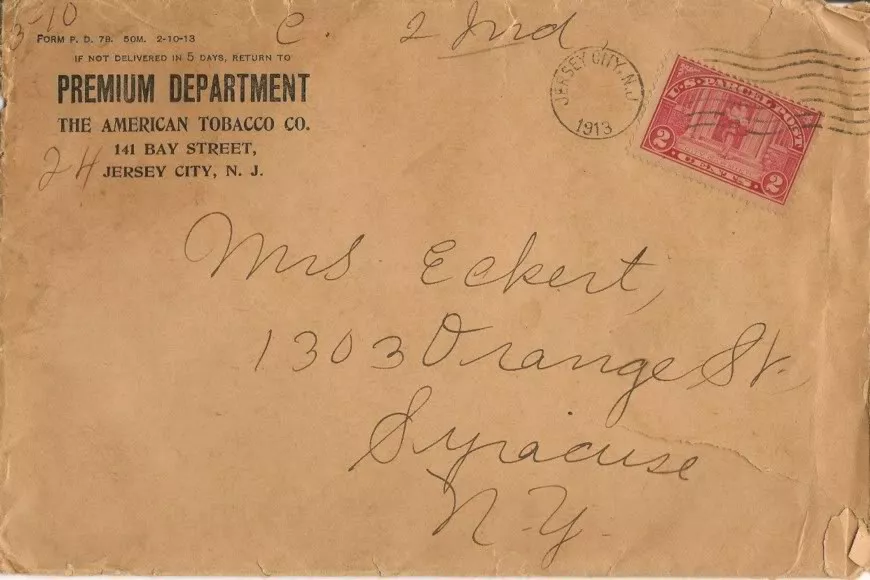 3-10
C. 2 Ind
FORM P. D. 79. 50M. 2-10-13
IF NOT DELIVERED IN 5 DAYS, RETURN TO
PREMIUM DEPARTMENT
THE AMERICAN TOBACCO CO.
141 BAY STREET,
JERSEY CITY, N. J.
24
JERSEY CITY, N.J.
1913
U.S. PARCEL POST
2 CENTS 2
Mrs Eckert,
1303 Orange St.
Syracuse
N.Y.